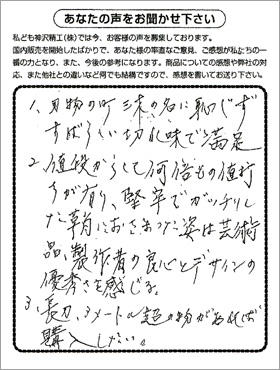 あなたの声をお聞かせ下さい
私ども神沢精工(株)では今、お客様の声を募集しております。
国内販売を開始したばかりで、あなた様の率直なご意見、ご感想が私たちの一
番の力となり、また、今後の参考になります。商品についての感想や弊社の対
応、また他社との違いなど何でも結構ですので、感想を書いてお送り下さい。
1、刃物の町三木の名に恥じず
すばらしい切れ味で満足
2、値段からして何倍もの値打
ちが有り、堅牢でガッチリし
た革肖におさまった姿は芸術
品、製作者の良心とデザインの
優秀さを感じる。
3、長刀、3メートル超の物があれば
購入したい。